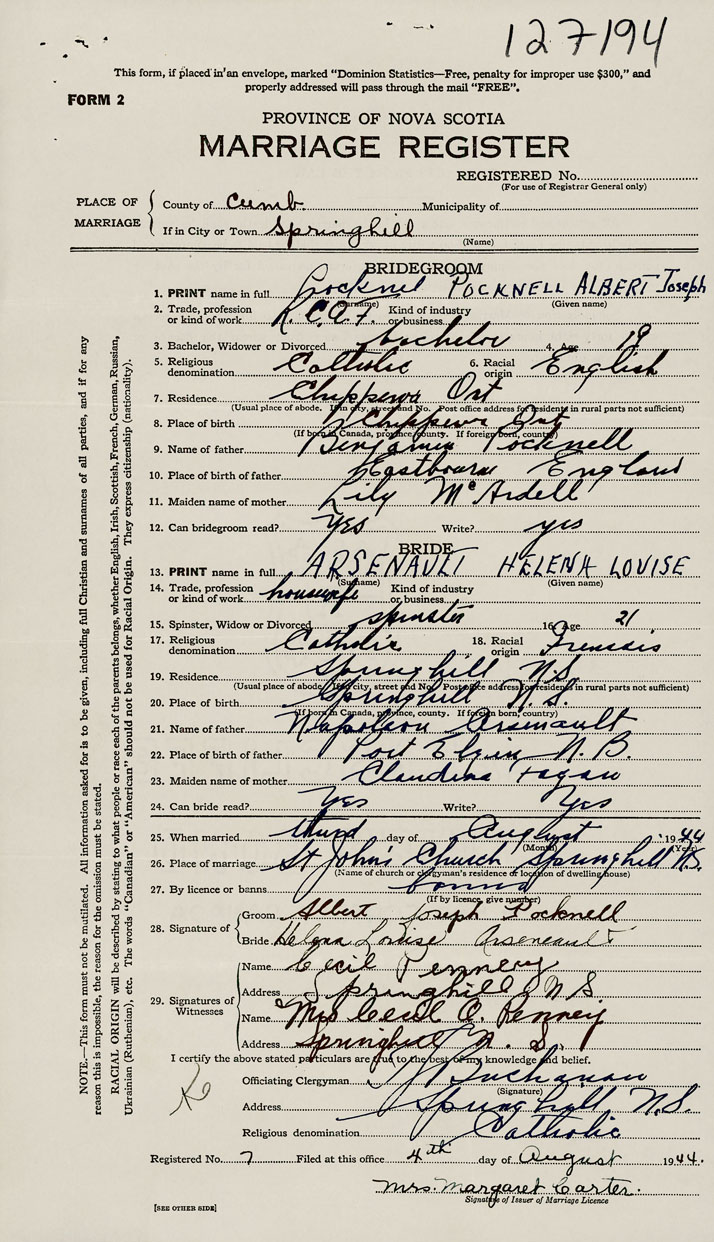 127194
This form, if placed in an envelope, marked "Dominion Statistics—Free, penalty for improper use $300," and
properly addressed will pass through the mail "FREE".
FORM 2
PROVINCE OF NOVA SCOTIA
MARRIAGE REGISTER
REGISTERED No.
(For use of Registrar General only)
PLACE OF MARRIAGE
County of Cumb. Municipality of
If in City or Town Springhill
(Name)
BRIDEGROOM
1. PRINT name in full Pocknell POCKNELL ALBERT Joseph
(Surname) (Given name)
2. Trade, profession or kind of work R.C.A.F. Kind of industry or business
3. Bachelor, Widower or Divorced bachelor 4. Age 19
5. Religious denomination Catholic 6. Racial origin English
7. Residence Chippewa Ont
(Usual place of abode. If in city, street and No. Post office address for resident in rural parts not sufficient)
8. Place of birth Chippewa Ont
(If born in Canada, province, county. If foreign born, country)
9. Name of father Benjamin Pocknell
10. Place of birth of father Eastbourne England
11. Maiden name of mother Lily McArdell
12. Can bridegroom read? Yes Write? yes
BRIDE
13. PRINT name in full ARSENAULT HELENA LOUISE
(Surname) (Given name)
14. Trade, profession or kind of work housewife Kind of industry or business
15. Spinster, Widow or Divorced spinster 16. Age 21
17. Religious denomination Catholic 18. Racial origin Francais
19. Residence Springhill N.S.
(Usual place of abode. If in city, street and No. Post office address for residents in rural parts not sufficient)
20. Place of birth Springhill N.S.
(If born in Canada, province, county. If foreign born, country)
21. Name of father Napoleon Arsenault
22. Place of birth of father Port Elgin N.B.
23. Maiden name of mother Claudina Fagan
24. Can bride read? Yes Write? Yes
25. When married third day of August 1944
(Month) (Year)
26. Place of marriage St John's Church Springhill N.S.
(Name of church or clergyman's residence or location of dwelling house)
27. By licence or banns banns
(If by licence, give number)
28. Signature of
Groom Albert Joseph Pocknell
Bride Helena Louise Arseneault
29. Signatures of Witnesses
Name Cecil Penney
Address Springhill N S
Name Mrs Cecil C. Penney
Address Springhill N. S.
I certify the above stated particulars are true to the best of my knowledge and belief.
Officiating Clergyman Buchanan
(Signature)
Address Springhill N.S.
Religious denomination Catholic
Registered No. 7 Filed at this office 4th day of August 1944.
Mrs. Margaret Carter.
Signature of Issuer of Marriage Licence
[SEE OTHER SIDE]
NOTE.—This form must not be mutilated. All information asked for is to be given, including full Christian and surnames of all parties, and if for any
reason this is impossible, the reason for the omission must be stated.
RACIAL ORIGIN will be described by stating to what people or race each of the parents belongs, whether English, Irish, Scottish, French, German, Russian,
Ukrainian (Ruthenian), etc. The words "Canadian" or "American" should not be used for Racial Origin. They express citizenship (nationality).